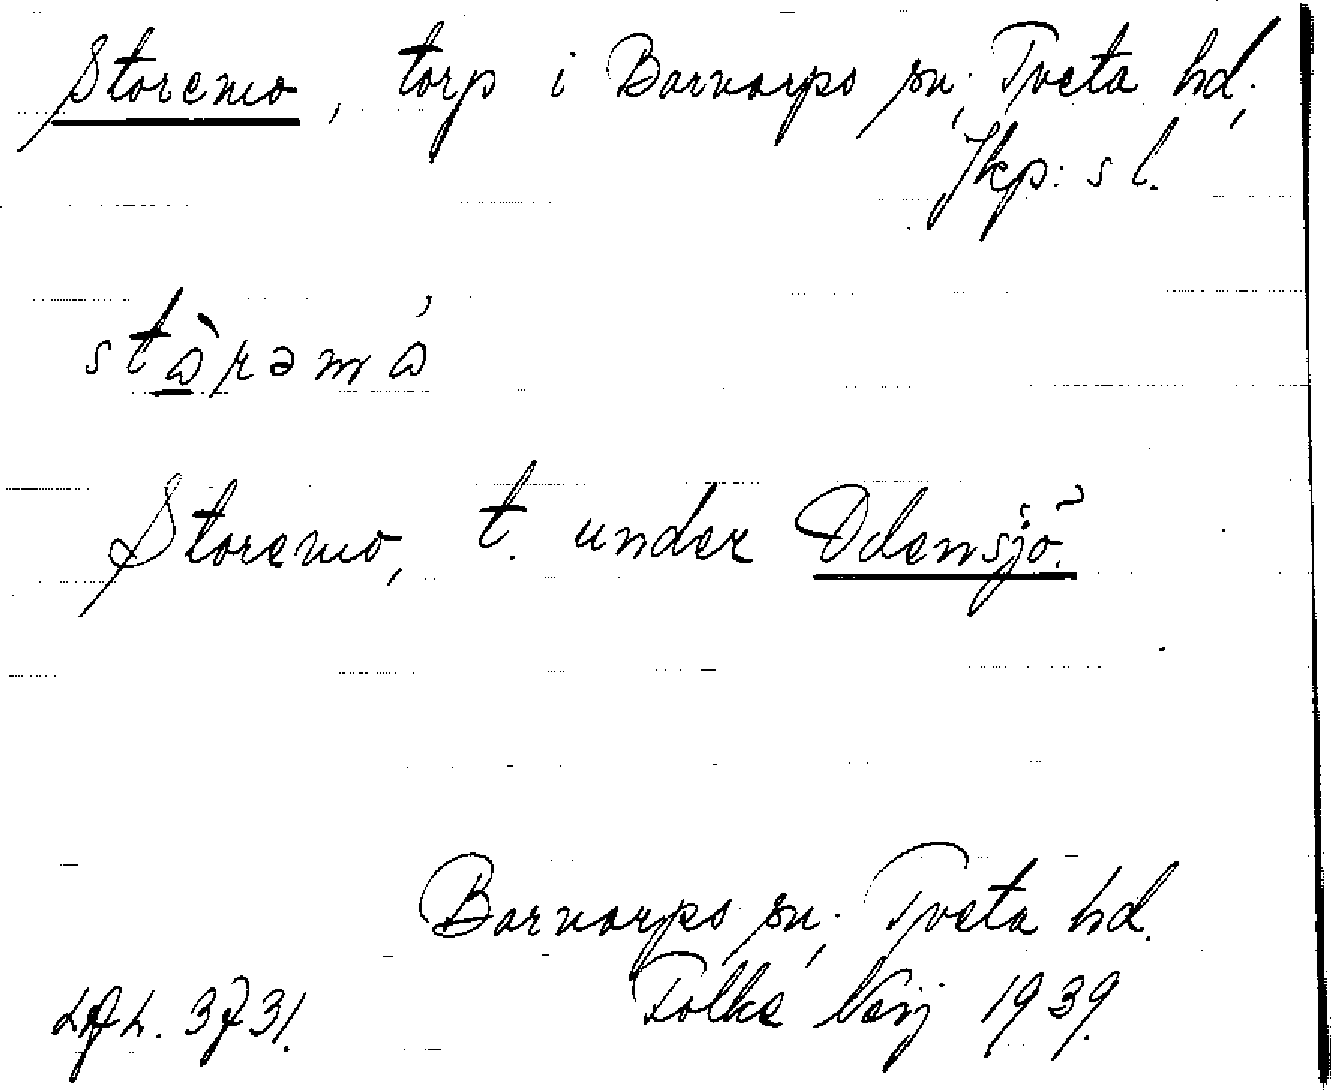 Storemo, torp i Barnarps sn; Tveta hd;
Jkp:s l.
stòrəmó
Storemo, t. under Odensjö.
Barnarps sn; Tveta hd.
Folke
1939.